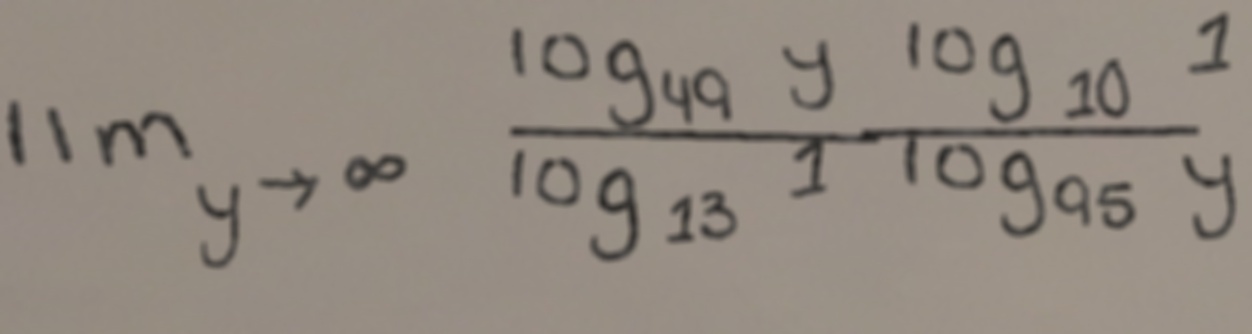 lim y→∞ \frac{log_{49} y log_{10} 1}{log_{13} 1 log_{95} y}